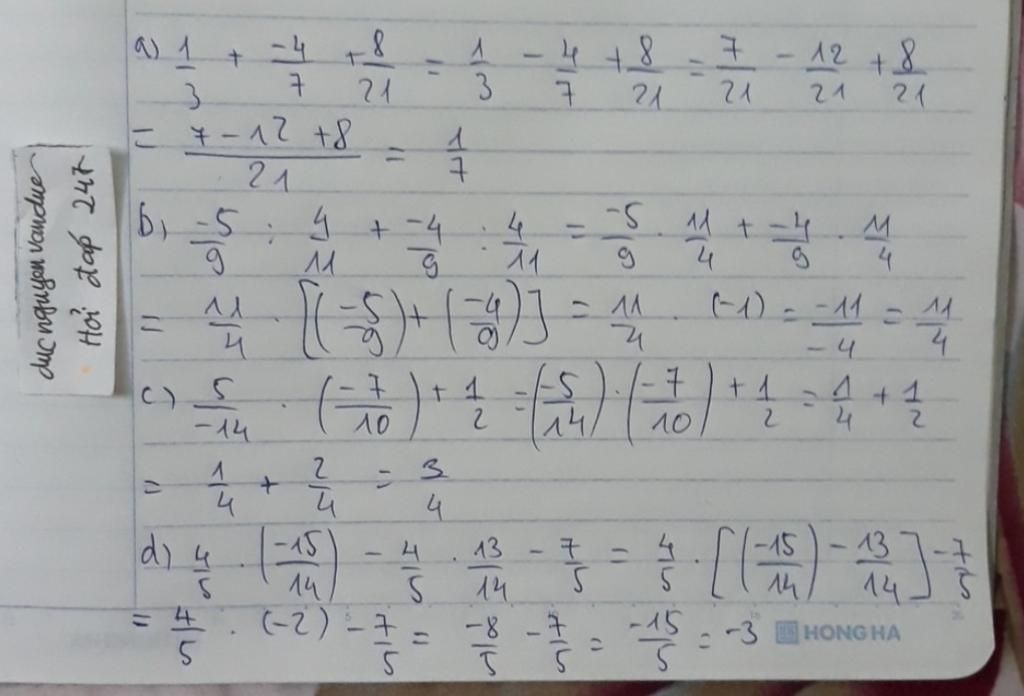 a) 1/3 + -4/7 + 8/21 = 1/3 - 4/7 + 8/21 = 7/21 - 12/21 + 8/21
= (7 - 12 + 8)/21 = 1/7
b) -5/9 : 4/11 + -4/9 : 4/11 = -5/9 . 11/4 + -4/9 . 11/4
= 11/4 . [(-5/9) + (-4/9)] = 11/4 . (-1) = -11/-4 = 11/4
c) 5/-14 . (-7/10) + 1/2 = (-5/14) . (-7/10) + 1/2 = 1/4 + 1/2
= 1/4 + 2/4 = 3/4
d) 4/5 . (-15/14) - 4/5 . 13/14 - 7/5 = 4/5 . [(-15/14) - 13/14] - 7/5
= 4/5 . (-2) - 7/5 = -8/5 - 7/5 = -15/5 = -3
HONG HA
ducnguyenvanduc
Hỏi đáp 247